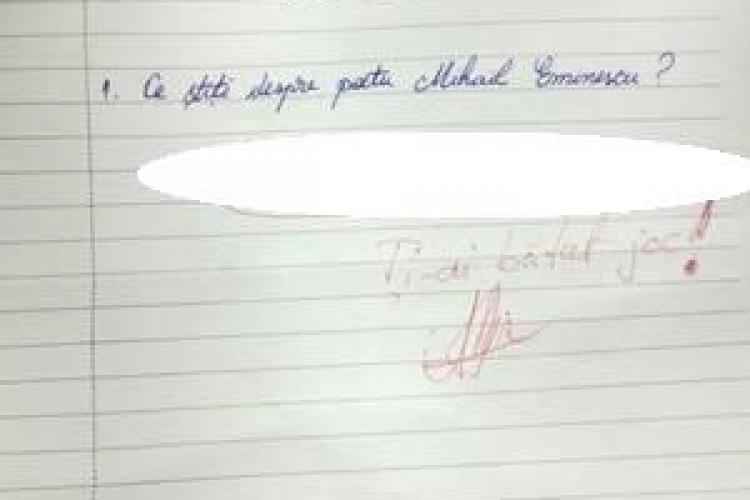 1. Ce știți despre poetu Mihail Eminescu?
Ți-ai bătut joc!